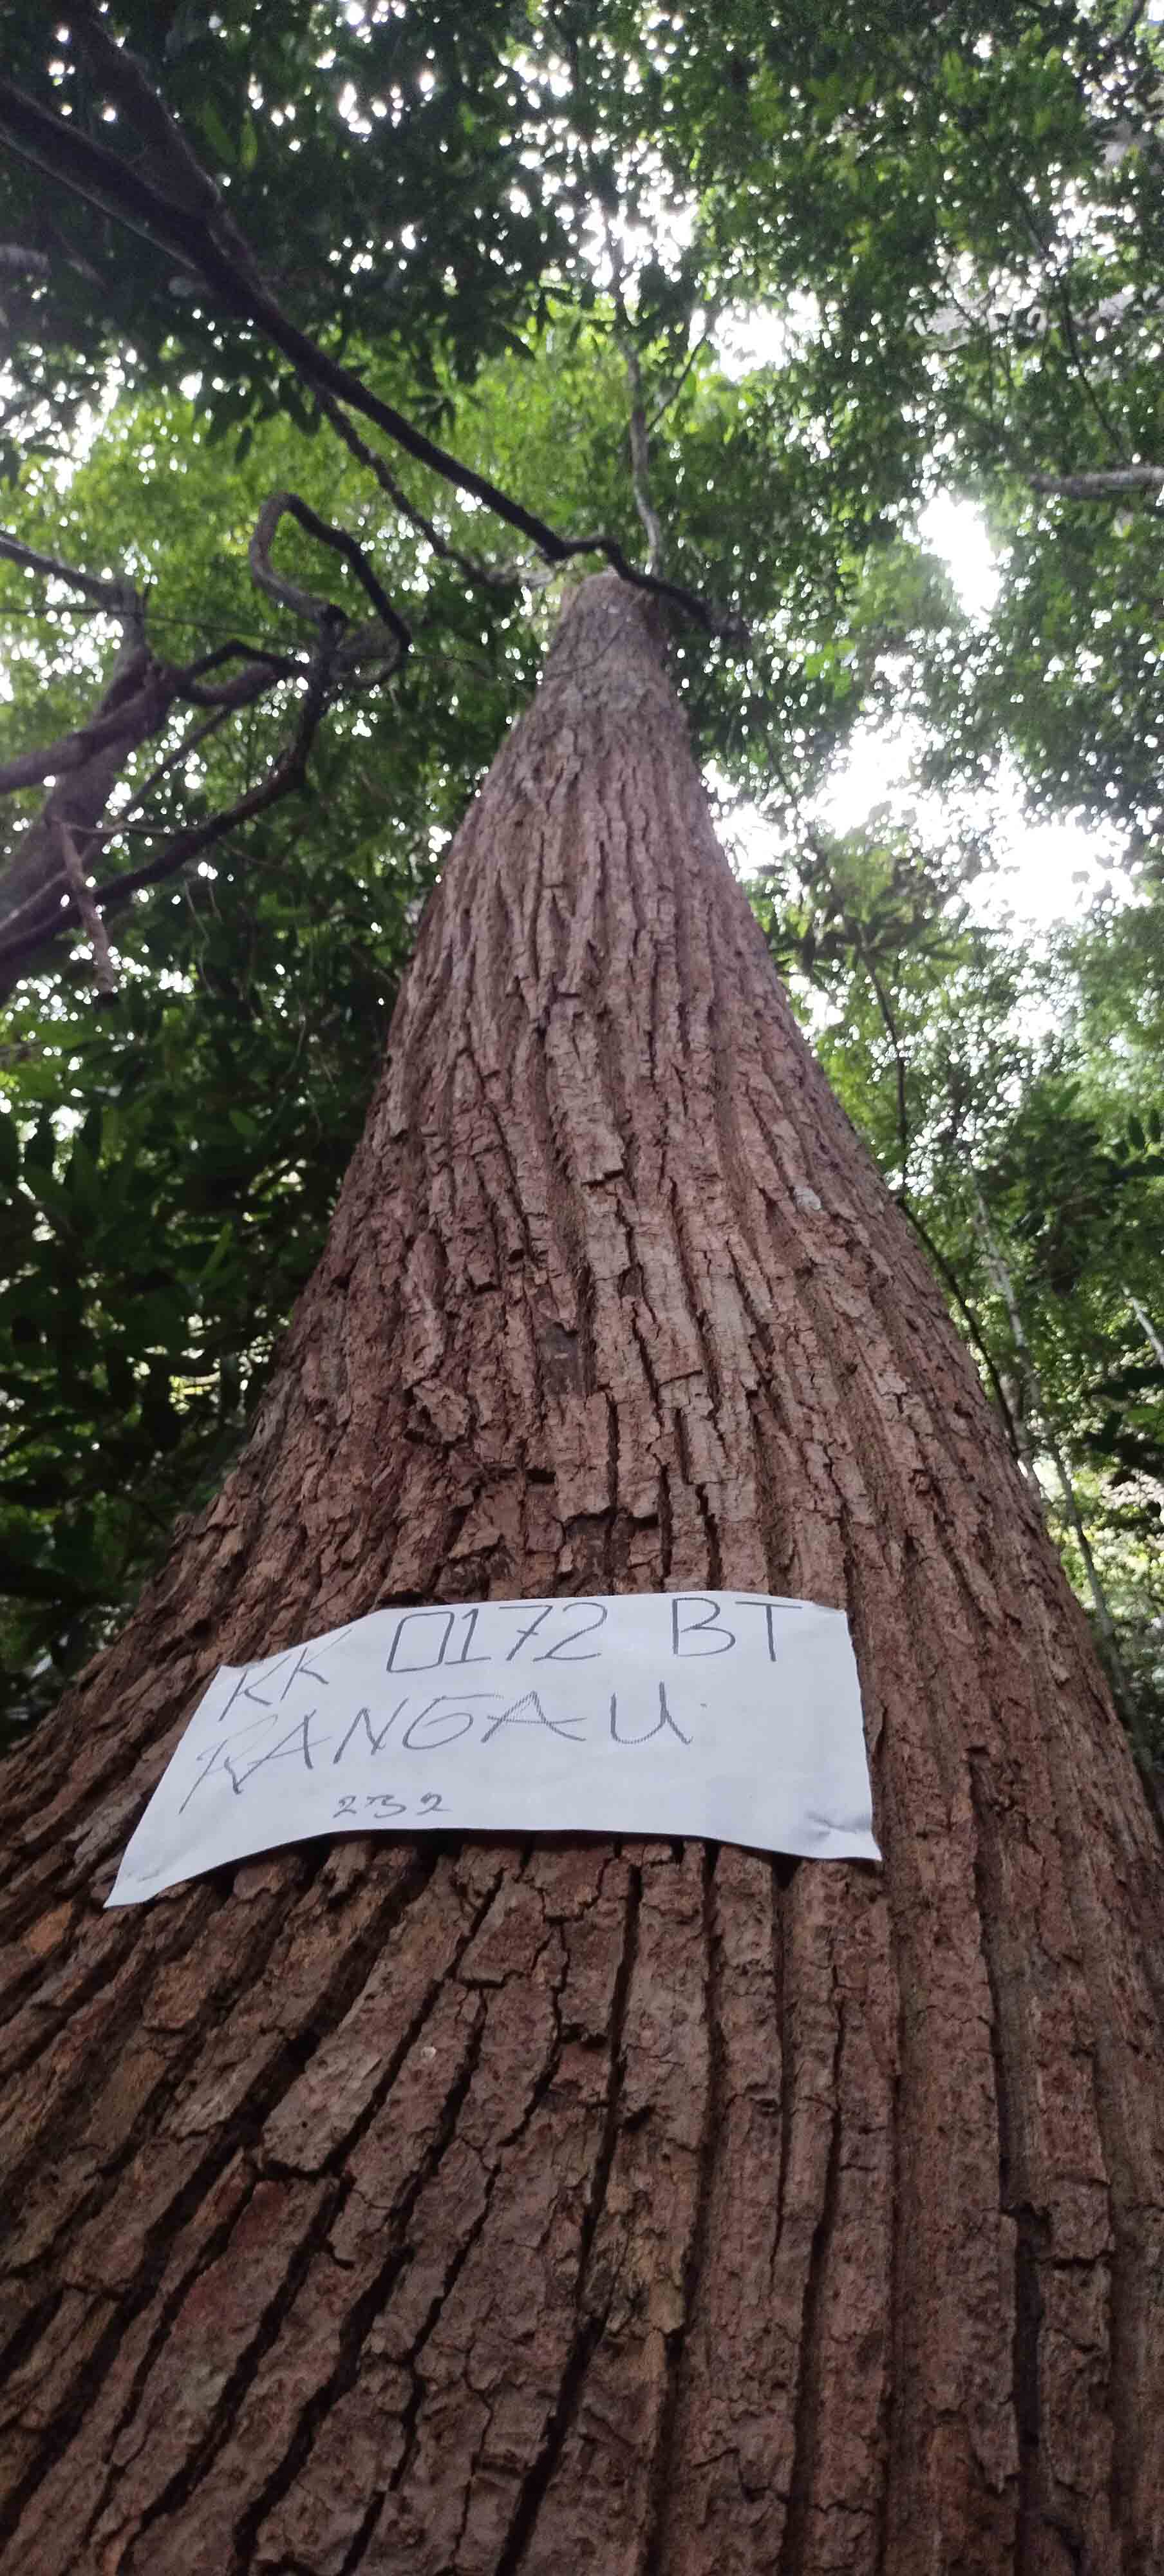 KK 0172 BT
RANGAU
232